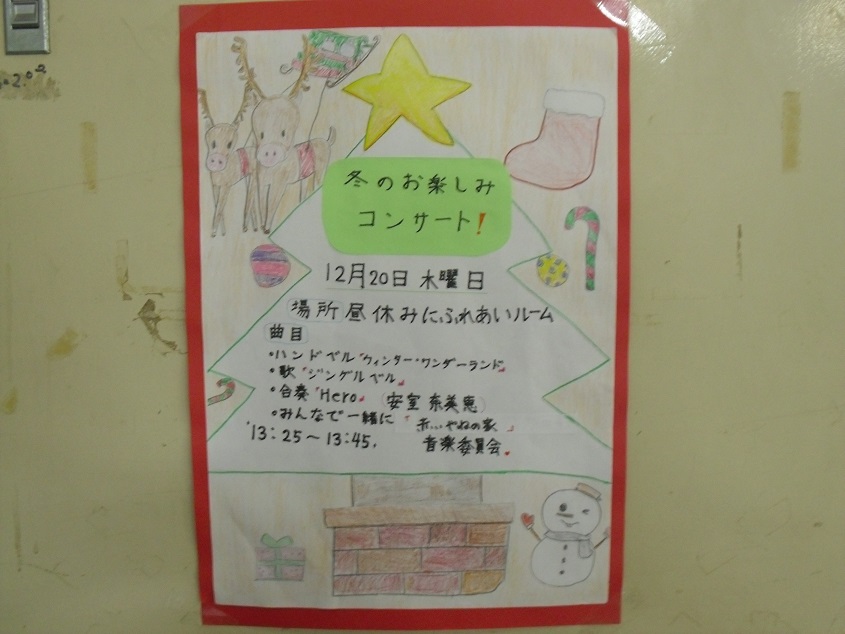 冬のお楽しみ
コンサート!
12月20日 木曜日
場所 昼休みにふれあいルーム
曲目
・ハンドベル「ウィンター・ワンダーランド」
・歌「ジングルベル」
・合奏「Hero」 安室奈美恵
・みんなで一緒に「赤いやねの家」
13:25～13:45.
音楽委員会